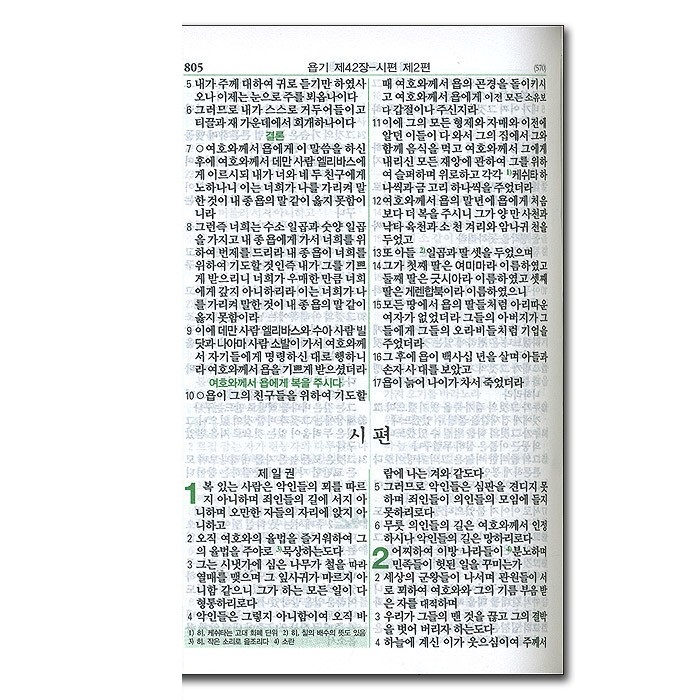 805
욥기 제42장-시편 제2편
(570)
5 내가 주께 대하여 귀로 듣기만 하였사
오나 이제는 눈으로 주를 뵈옵나이다
6 그러므로 내가 스스로 거두어들이고
티끌과 재 가운데에서 회개하나이다
결론
7 ○여호와께서 욥에게 이 말씀을 하신
후에 여호와께서 데만 사람 엘리바스에
게 이르시되 내가 너와 네 두 친구에게
노하나니 이는 너희가 나를 가리켜 말
한 것이 내 종 욥의 말 같이 옳지 못함이
니라
8 그런즉 너희는 수소 일곱과 숫양 일곱
을 가지고 내 종 욥에게 가서 너희를 위
하여 번제를 드리라 내 종 욥이 너희를
위하여 기도할 것인즉 내가 그를 기쁘
게 받으리니 너희가 우매한 만큼 너희
에게 갚지 아니하리라 이는 너희가 나
를 가리켜 말한 것이 내 종 욥의 말 같이
옳지 못함이라
9 이에 데만 사람 엘리바스와 수아 사람 빌
닷과 나아마 사람 소발이 가서 여호와께
서 자기들에게 명령하신 대로 행하니
라 여호와께서 욥을 기쁘게 받으셨더라
여호와께서 욥에게 복을 주시다
10 ○욥이 그의 친구들을 위하여 기도할
때 여호와께서 욥의 곤경을 돌이키시
고 여호와께서 욥에게 이전 모든 소유보
다 갑절이나 주신지라
11 이에 그의 모든 형제와 자매와 이전에
알던 이들이 다 와서 그의 집에서 그와
함께 음식을 먹고 여호와께서 그에게
내리신 모든 재앙에 관하여 그를 위하
여 슬퍼하며 위로하고 각각 1)케쉬타 하
나씩과 금 고리 하나씩을 주었더라
12 여호와께서 욥의 말년에 욥에게 처음
보다 더 복을 주시니 그가 양 만 사천과
낙타 육천과 소 천 겨리와 암나귀 천을
두었고
13 또 아들 2)일곱과 딸 셋을 두었으며
14 그가 첫째 딸은 여미마라 이름하였고
둘째 딸은 긋시아라 이름하였고 셋째
딸은 게렌합북이라 이름하였으니
15 모든 땅에서 욥의 딸들처럼 아리따운
여자가 없었더라 그들의 아버지가 그
들에게 그들의 오라비들처럼 기업을
주었더라
16 그 후에 욥이 백사십 년을 살며 아들과
손자 사 대를 보았고
17 욥이 늙어 나이가 차서 죽었더라
시 편
제 일 권
1 복 있는 사람은 악인들의 꾀를 따르
지 아니하며 죄인들의 길에 서지 아
니하며 오만한 자들의 자리에 앉지 아
니하고
2 오직 여호와의 율법을 즐거워하여 그
의 율법을 주야로 3)묵상하는도다
3 그는 시냇가에 심은 나무가 철을 따라
열매를 맺으며 그 잎사귀가 마르지 아
니함 같으니 그가 하는 모든 일이 다
형통하리로다
4 악인들은 그렇지 아니함이여 오직 바
람에 나는 겨와 같도다
5 그러므로 악인들은 심판을 견디지 못
하며 죄인들이 의인들의 모임에 들지
못하리로다
6 무릇 의인들의 길은 여호와께서 인정
하시나 악인들의 길은 망하리로다
2 어찌하여 이방 나라들이 4)분노하며
민족들이 헛된 일을 꾸미는가
2 세상의 군왕들이 나서며 관원들이 서
로 꾀하여 여호와와 그의 기름 부음 받
은 자를 대적하며
3 우리가 그들의 맨 것을 끊고 그의 결박
을 벗어 버리자 하는도다
4 하늘에 계신 이가 웃으심이여 주께서
1) 히, 케쉬타는 고대 화폐 단위 2) 히, 칠의 배수의 뜻도 있음
3) 히, 작은 소리로 읊조리다 4) 소란